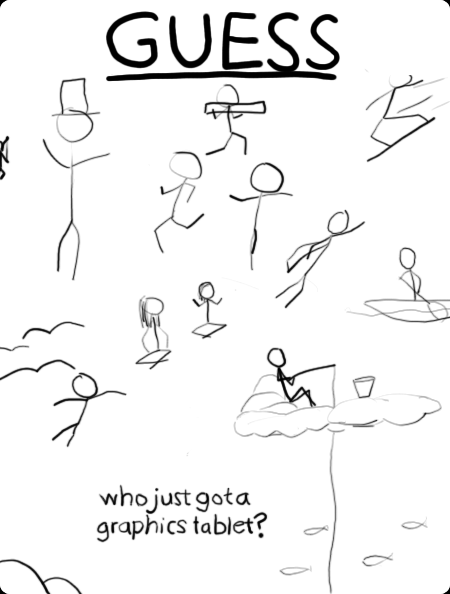 GUESS
who just got a
graphics tablet?